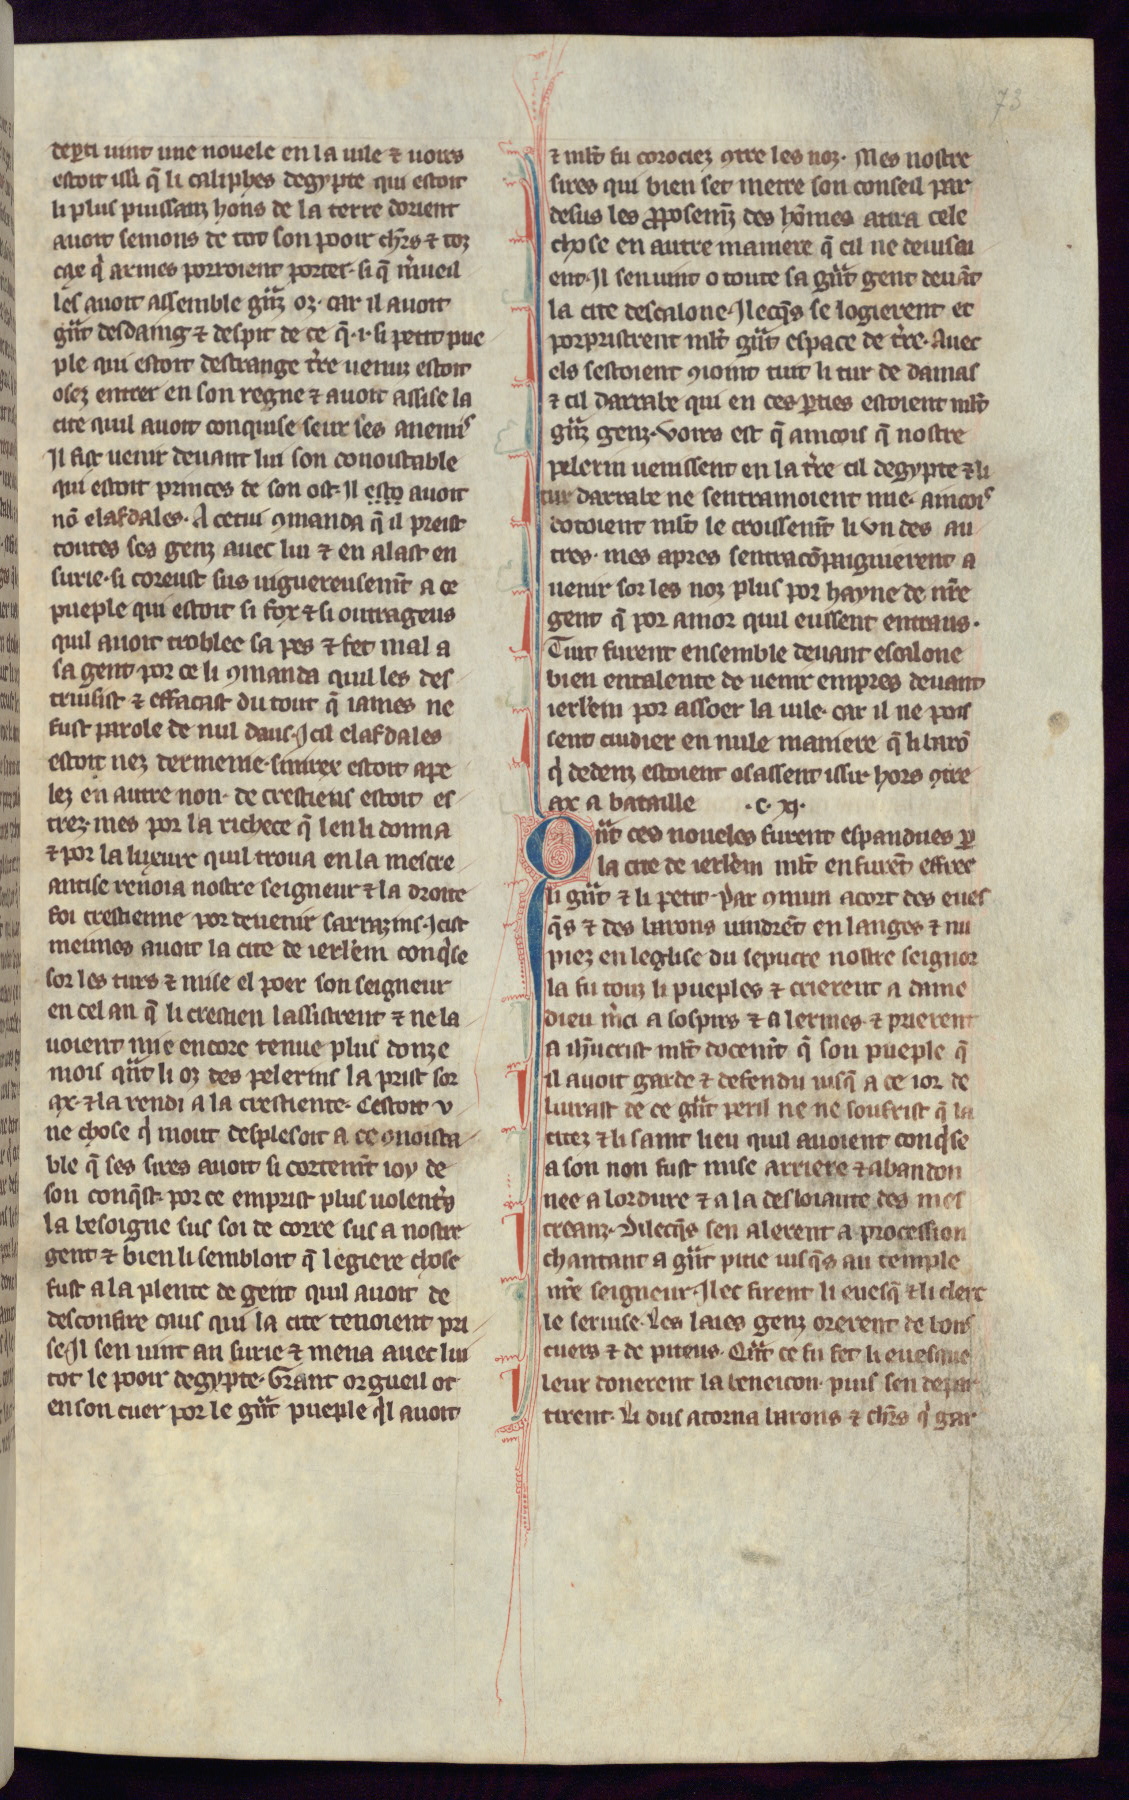 73
deꝑti uint une nouele en la uile ⁊ uoirs
estoit issi q̃ li caliphes degypte qui estoit
li plus puissanz hons de la terre dorient
auoit semons de tot son pooir chrs ⁊ toz
cax q̇ armes porroient porter· si q̃ m̃ueil
les auoit assemble gñz oz· car il auoit
gñt desdaing ⁊ despit de ce q̃·i· si petit pue
ple qui estoit destrange t̃re uenuz estoit
osez entrer en son regne ⁊ auoit assise la
cite quil auoit conquise seur ses anemis
Il fist uenir deuant lui son conoistable
qui estoit princes de son ost· Il esto auoit
nõ elafdales· A cetui ꝯmanda q̃ il preist
toutes ses genz auec lui ⁊ en alast en
surie· si coreust sus uiguereusemt̃ a ce
pueple qui estoit si fox ⁊ si outrageus
quil auoit troblee sa pes ⁊ fet mal a
sa gent· por ce li ꝯmanda quil les des
truisist ⁊ effacast du tout q̃ iames ne
fust parole de nul daus· Icil elafdales
estoit nez dermenie· emirer estoit ape
lez en autre non· de crestiens estoit es
trez· mes por la richece q̃ len li donna
⁊ por la luxure quil troua en la mescre
antise renoia nostre seigneur ⁊ la droite
foi crestienne por deuenir sarrazins· Icist
meimes auoit la cite de ierlem conq̇se
sor les turs ⁊ mise el poer son seigneur
en cel an q̃ li crestien lassistrent ⁊ ne la
uoient mie encore tenue plus donze
mois qñt li oz des pelerins la prist sor
ax· ⁊ la rendi a la crestiente· Cestoit v
ne chose q̇ mout desplesoit a ce ꝯnoista
ble q̃ ses sires auoit si cortemt̃ ioy de
son conq̃st· por ce emprist plus uolent̃s
la besoigne sus soi de corre sus a nostre
gent· ⁊ bien li sembloit q̃ legiere chose
fust a la plente de gent quil auoit de
desconfire ceus qui la cite tenoient pri
se· Il sen uint an surie ⁊ mena auec lui
tot le pooir degypte· Grant orgueil ot
en son cuer por le gñt pueple q̇l auoit
⁊ mlt̃ fu corociez ꝯtre les noz· Mes nostre
sires qui bien set metre son conseil par
desus les ꝓposemz des hõmes atira cele
chose en autre maniere q̃ cil ne deuisoi
ent· Il sen uint o toute sa gñt gent deuãt
la cite descalone· Ilecq̃s se logierent et
porpristrent mlt̃ gñt espace de t̃re· Auec
els sestoient ꝯioint tuit li tur de damas
⁊ cil darrabe qui en ces ꝑties estoient mlt̃
gñz genz· Voirs est q̃ aincois q̃ nostre
pelerin uenissent en la t̃re cil degypte ⁊ li
tur darrabe ne sentramoient mie· aincois
dotoient mlt̃ le croissemt̃ li vn des au
tres· mes apres sentracõpaignierent a
uenir sor les noz plus por hayne de nr̃e
gent q̃ por amor quil eussent entraus·
Tuit furent ensemble deuant escalone
bien entalente de uenir empres deuant
ierlem por assoer la uile· car il ne pois
sent cuidier en nule maniere q̃ li barõ
q̇ dedenz estoient osassent issir hors ꝯtre
ax a bataille ·c· xj·
Qñt ces noueles furent espandues ꝑ
la cite de ierlem mlt̃ en furẽt effree
li gñt ⁊ li petit· Par ꝯmun acort des eues
q̃s ⁊ des barons uindrẽt en langes ⁊ nu
piez en leglise du sepucre nostre seignor
la fu touz li pueples ⁊ crierent a dame
dieu m̃ci a sospirs ⁊ a lermes· ⁊ prierent
a ih̃ucrist mlt̃ docemt̃ q̃ son pueple q̃
il auoit garde ⁊ defendu iusq̃ a ce ior de
liurast de ce gñt peril ne ne soufrist q̃ la
citez ⁊ li saint lieu quil auoient conq̇se
a son non fust mise arriere ⁊ abandon
nee a lordure ⁊ a la desloiaute des mes
creanz· Dilecq̃s sen alerent a procession
chantant a gñt pitie iusq̃s au temple
nr̃e seigneur· Ilec firent li euesq̃ ⁊ li clerc
le seruise· Les laies genz orerent de bons
cuers ⁊ de piteus· Qñt ce fu fet li euesque
leur donerent la beneicon· puis sen depar
tirent· Li dus atorna barons ⁊ chrs q̇ gar